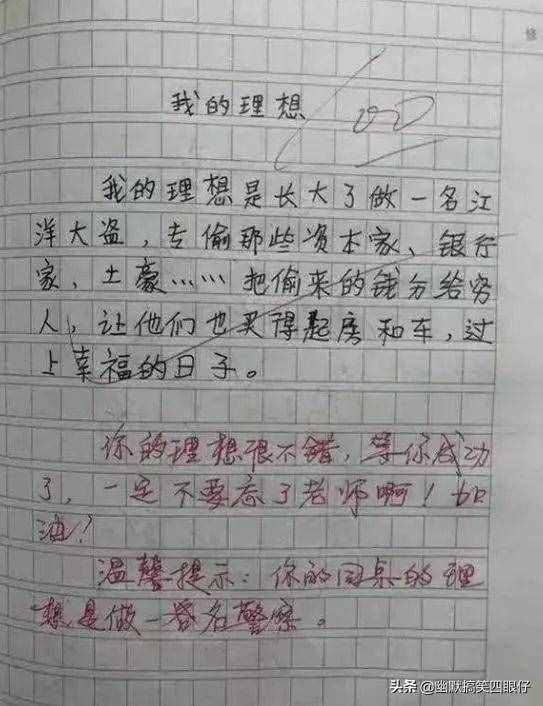 我的理想
我的理想是长大了做一名江
洋大盗，专偷那些资本家、银行
家、土豪……把偷来的钱分给穷
人，让他们也买得起房和车，过
上幸福的日子。
你的理想很不错，等你成功
了，一定不要忘了老师啊！加
油！
温馨提示：你的同桌的理
想是做一名警察。
头条 @幽默搞笑四眼仔